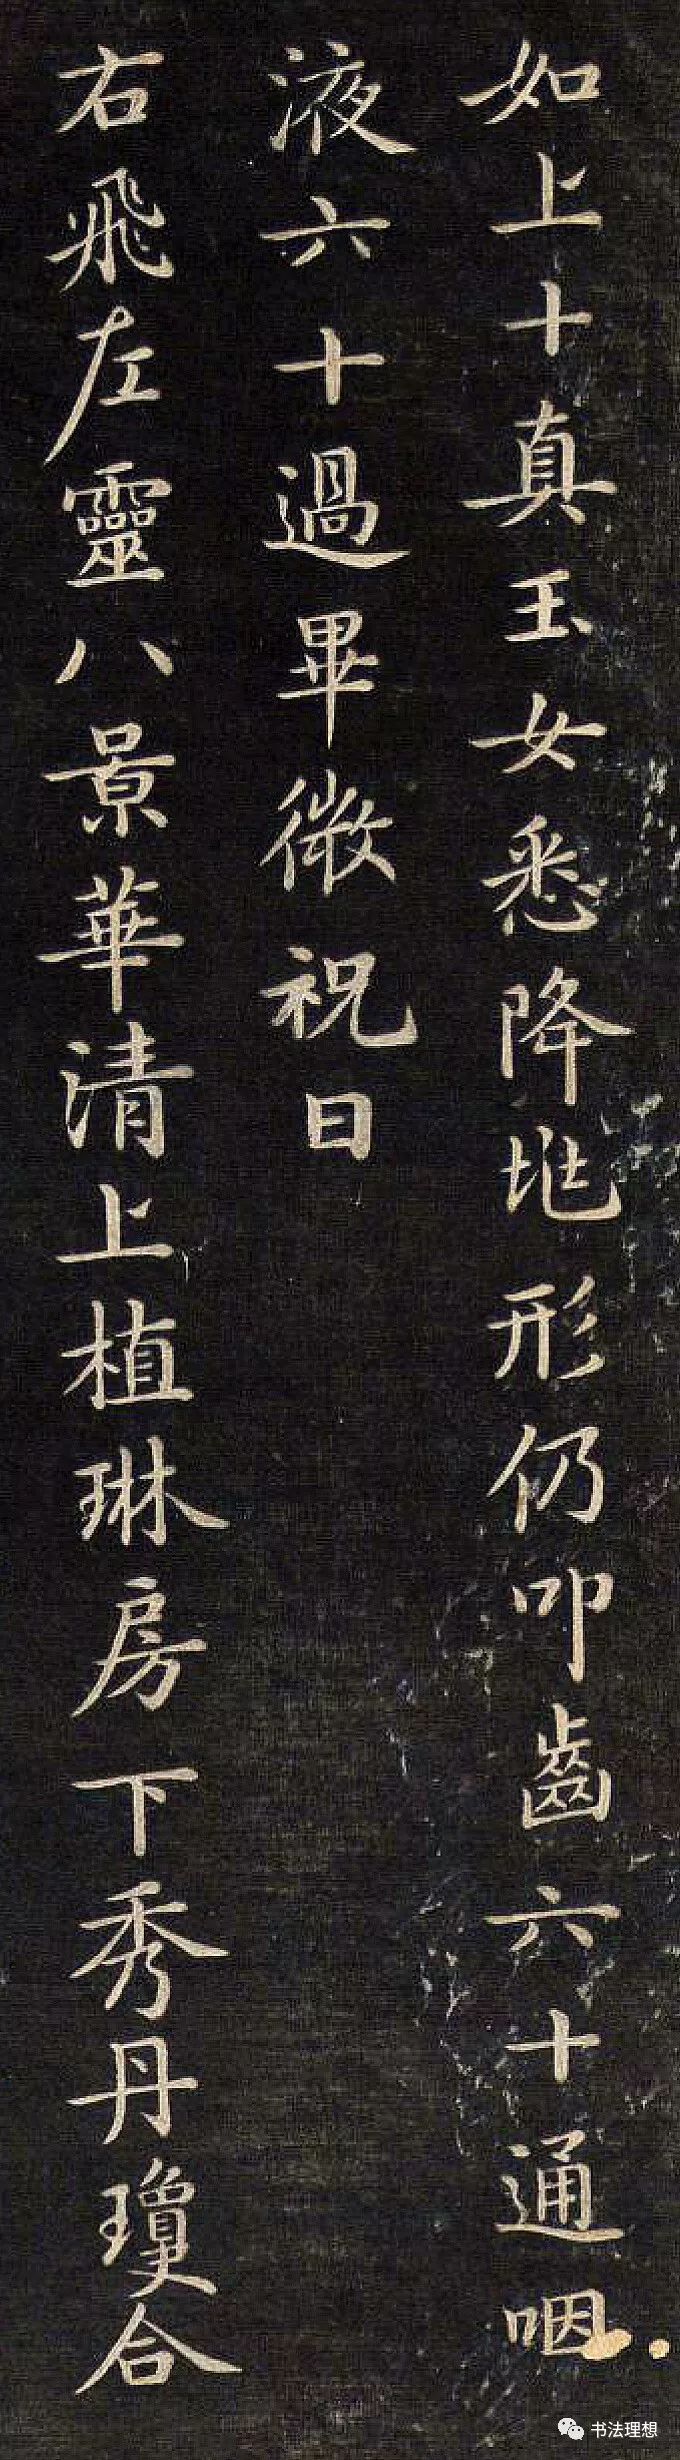 如上十真玉女悉降地形仍叩齒六十通咽
液六十過畢微祝曰
右飛左靈八景華清上植琳房下秀丹瓊合
书法理想